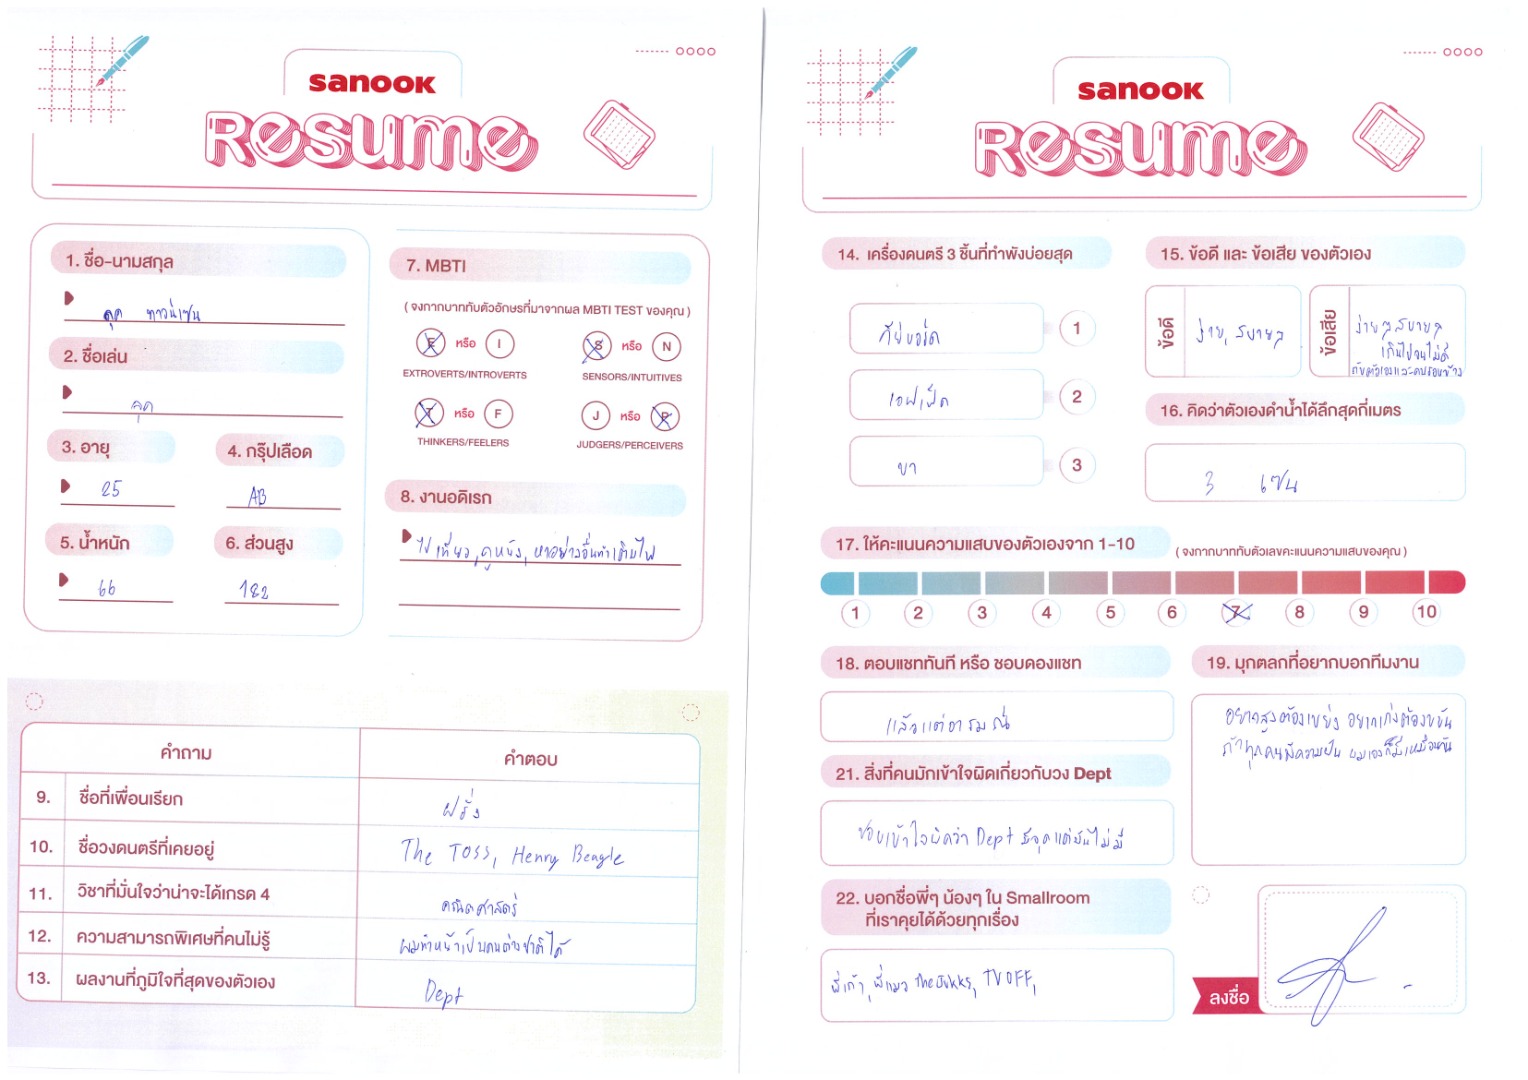 sanook
Resume
1. ชื่อ-นามสกุล
ลุค ทาวน์เซน
2. ชื่อเล่น
ลุค
3. อายุ
25
4. กรุ๊ปเลือด
AB
5. น้ำหนัก
66
6. ส่วนสูง
182
7. MBTI
( จงกากบาททับตัวอักษรที่มาจากผล MBTI TEST ของคุณ )
E หรือ I
EXTROVERTS/INTROVERTS
S หรือ N
SENSORS/INTUITIVES
T หรือ F
THINKERS/FEELERS
J หรือ P
JUDGERS/PERCEIVERS
8. งานอดิเรก
ไปเที่ยว, ดูหนัง, หาอย่างอื่นทำเติมไฟ
คำถาม คำตอบ
9. ชื่อที่เพื่อนเรียก ฝรั่ง
10. ชื่อวงดนตรีที่เคยอยู่ The TOSS, Henry Beagle
11. วิชาที่มั่นใจว่าน่าจะได้เกรด 4 คณิตศาสตร์
12. ความสามารถพิเศษที่คนไม่รู้ ผมทำหน้าเป็นคนต่างชาติได้
13. ผลงานที่ภูมิใจที่สุดของตัวเอง Dept
sanook
Resume
14. เครื่องดนตรี 3 ชิ้นที่ทำพังบ่อยสุด
คีย์บอร์ด 1
เอฟเฟ็ค 2
ขา 3
15. ข้อดี และ ข้อเสีย ของตัวเอง
ข้อดี
ง่ายๆ, สบายๆ
ข้อเสีย
ง่ายๆ สบายๆ
เกินไปจนไม่ดี
กับตัวเองและคนรอบข้าง
16. คิดว่าตัวเองดำน้ำได้ลึกสุดกี่เมตร
3 เซน
17. ให้คะแนนความแสบของตัวเองจาก 1-10
( จงกากบาททับตัวเลขคะแนนความแสบของคุณ )
1 2 3 4 5 6 7 8 9 10
18. ตอบแชททันที หรือ ชอบดองแชท
แล้วแต่อารมณ์
19. มุกตลกที่อยากบอกทีมงาน
อยากสูงต้องเขย่ง อยากเก่งต้องขยัน
ถ้าทุกคนมีความฝัน ผมเองก็มีเหมือนกัน
21. สิ่งที่คนมักเข้าใจผิดเกี่ยวกับวง Dept
ชอบเข้าใจผิดว่า Dept มีจุดแต่มันไม่มี
22. บอกชื่อพี่ๆ น้องๆ ใน Smallroom
ที่เราคุยได้ด้วยทุกเรื่อง
พี่เก้า, พี่แมว The Jukks, TV OFF,
ลงชื่อ